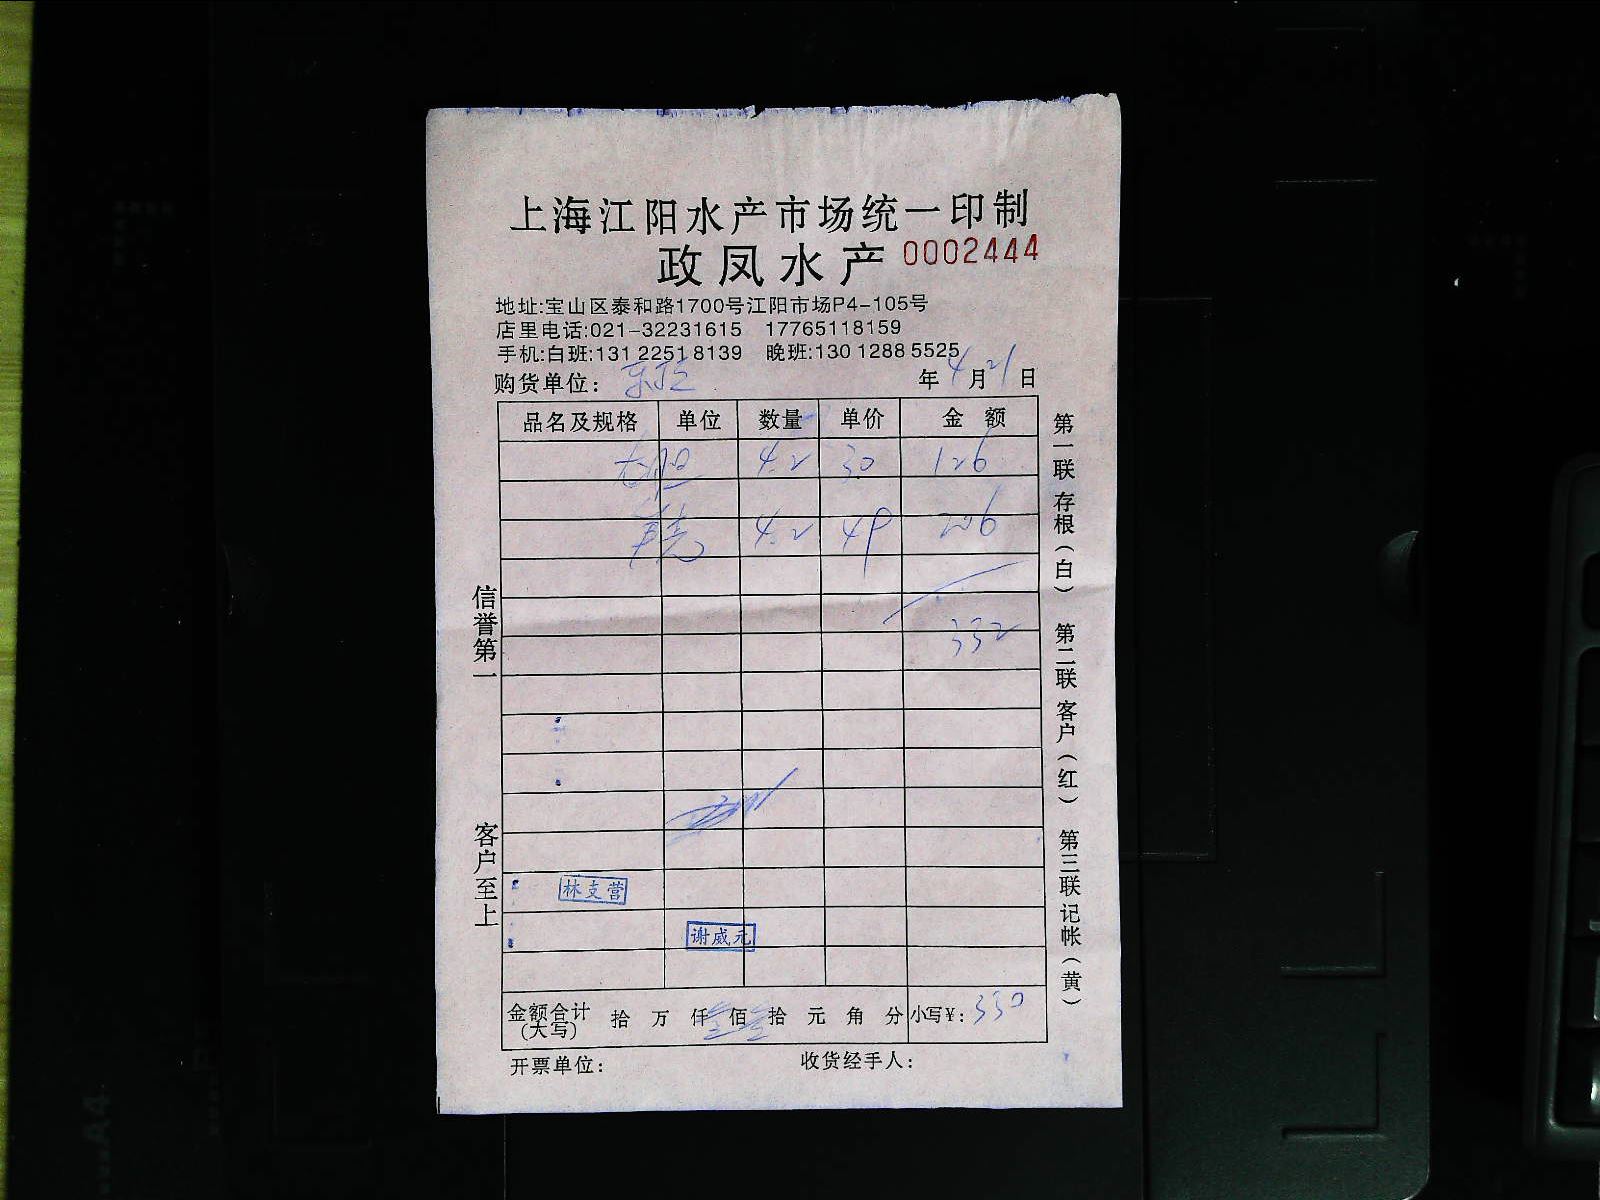 上海江阳水产市场统一印制
政凤水产 0002444
地址:宝山区泰和路1700号江阳市场P4-105号
店里电话:021-32231615 17765118159
手机:白班:131 2251 8139 晚班:130 1288 5525
购货单位: 年4月21日
品名及规格 单位 数量 单价 金额
4.2 30 126
4.2 49 206
332
林支营
谢威元
金额合计(大写) 拾 万 仟 叁 佰 叁 拾 元 角 分 小写¥: 330
开票单位: 收货经手人:
信誉第一 客户至上
第一联存根(白) 第二联客户(红) 第三联记帐(黄)